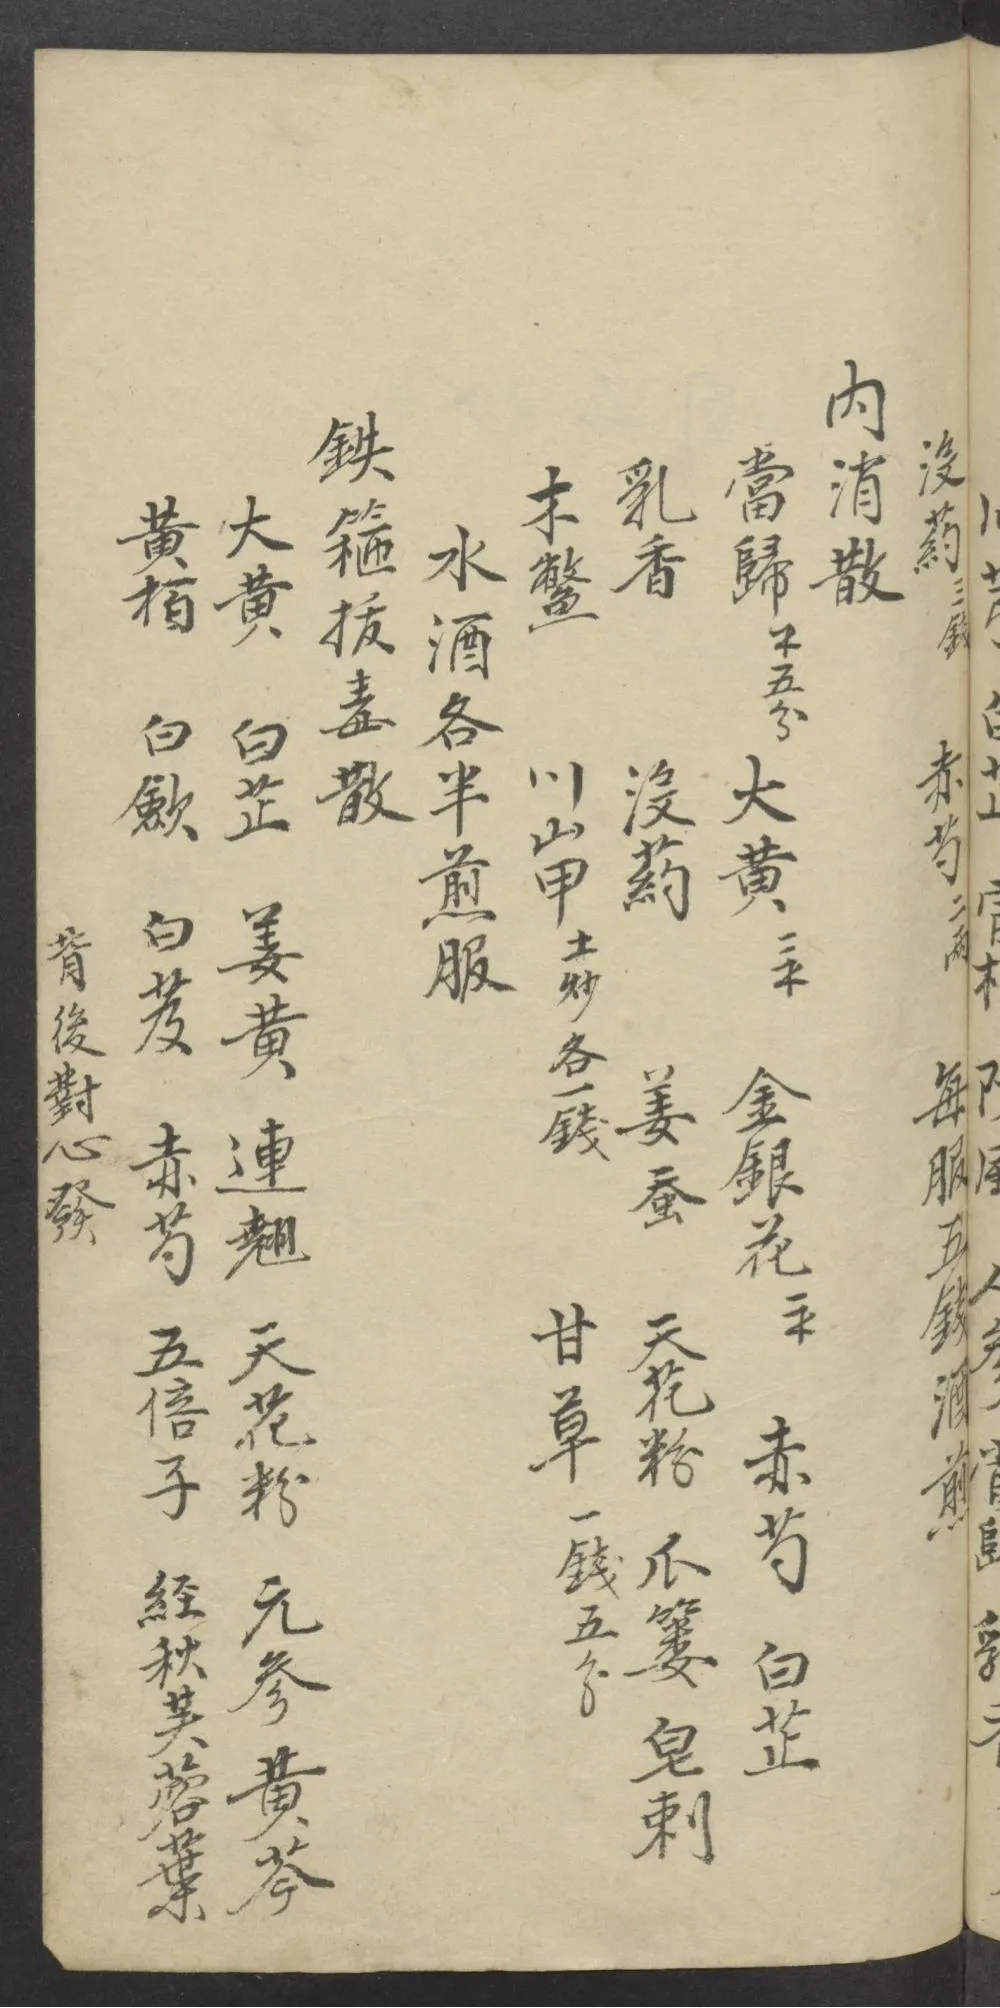 川芎 白芷
沒药三錢 赤芍二两 每服五錢酒煎
内消散
當歸 五分 大黄 金銀花 赤芍 白芷
乳香 沒药 姜蚕 天花粉 爪蔞 皂刺
末鳖 川山甲土炒各一錢 甘草一錢五分
水酒各半煎服
鉄箍拔毒散
大黄 白芷 姜黄 連翘 天花粉 元参 黄芩
黄栢 白歛 白芨 赤芍 五倍子 経秋芙蓉葉
背後對心發